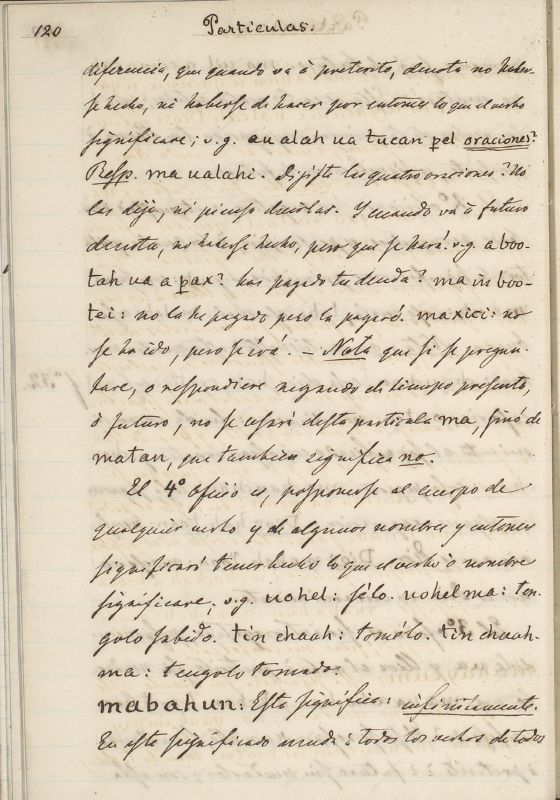 120 Particulas.
diferencia, que quando va à preterito, denota no haber-
se hecho, ni haberse de hacer por entonces lo que el verbo
significare; v.g. au alah ua tucan pel oraciones?
Resp. ma ualahi. Dijiste las quatro oraciones? No
las dije, ni pienso decirlas. Y cuando va à futuro
denota, no haberse hecho, pero que se hará. v.g. a boo-
tah ua a pax? has pagado tu deuda? ma in boo-
tei: no la he pagado pero la pagaré. maxici: no
se ha ido, pero se irá. – Nota que si se pregun-
tare, o respondiere negando de tiempo presente,
ò futuro, no se usará desta particula ma, sinó de
matan, que tambien significa no.
El 4º oficio es, posponerse al cuerpo de
qualquier verbo y de algunos nombres y entonces
significará tener hecho lo que el verbo ò nombre
significare; v.g. uohel: sélo. uohelma: ten-
golo sabido. tin chaah: tomélo. tin chaah-
ma: tengolo tomado.
mabahun: Esta significa: infinitamente.
En este significado muda à todos los verbos de todas